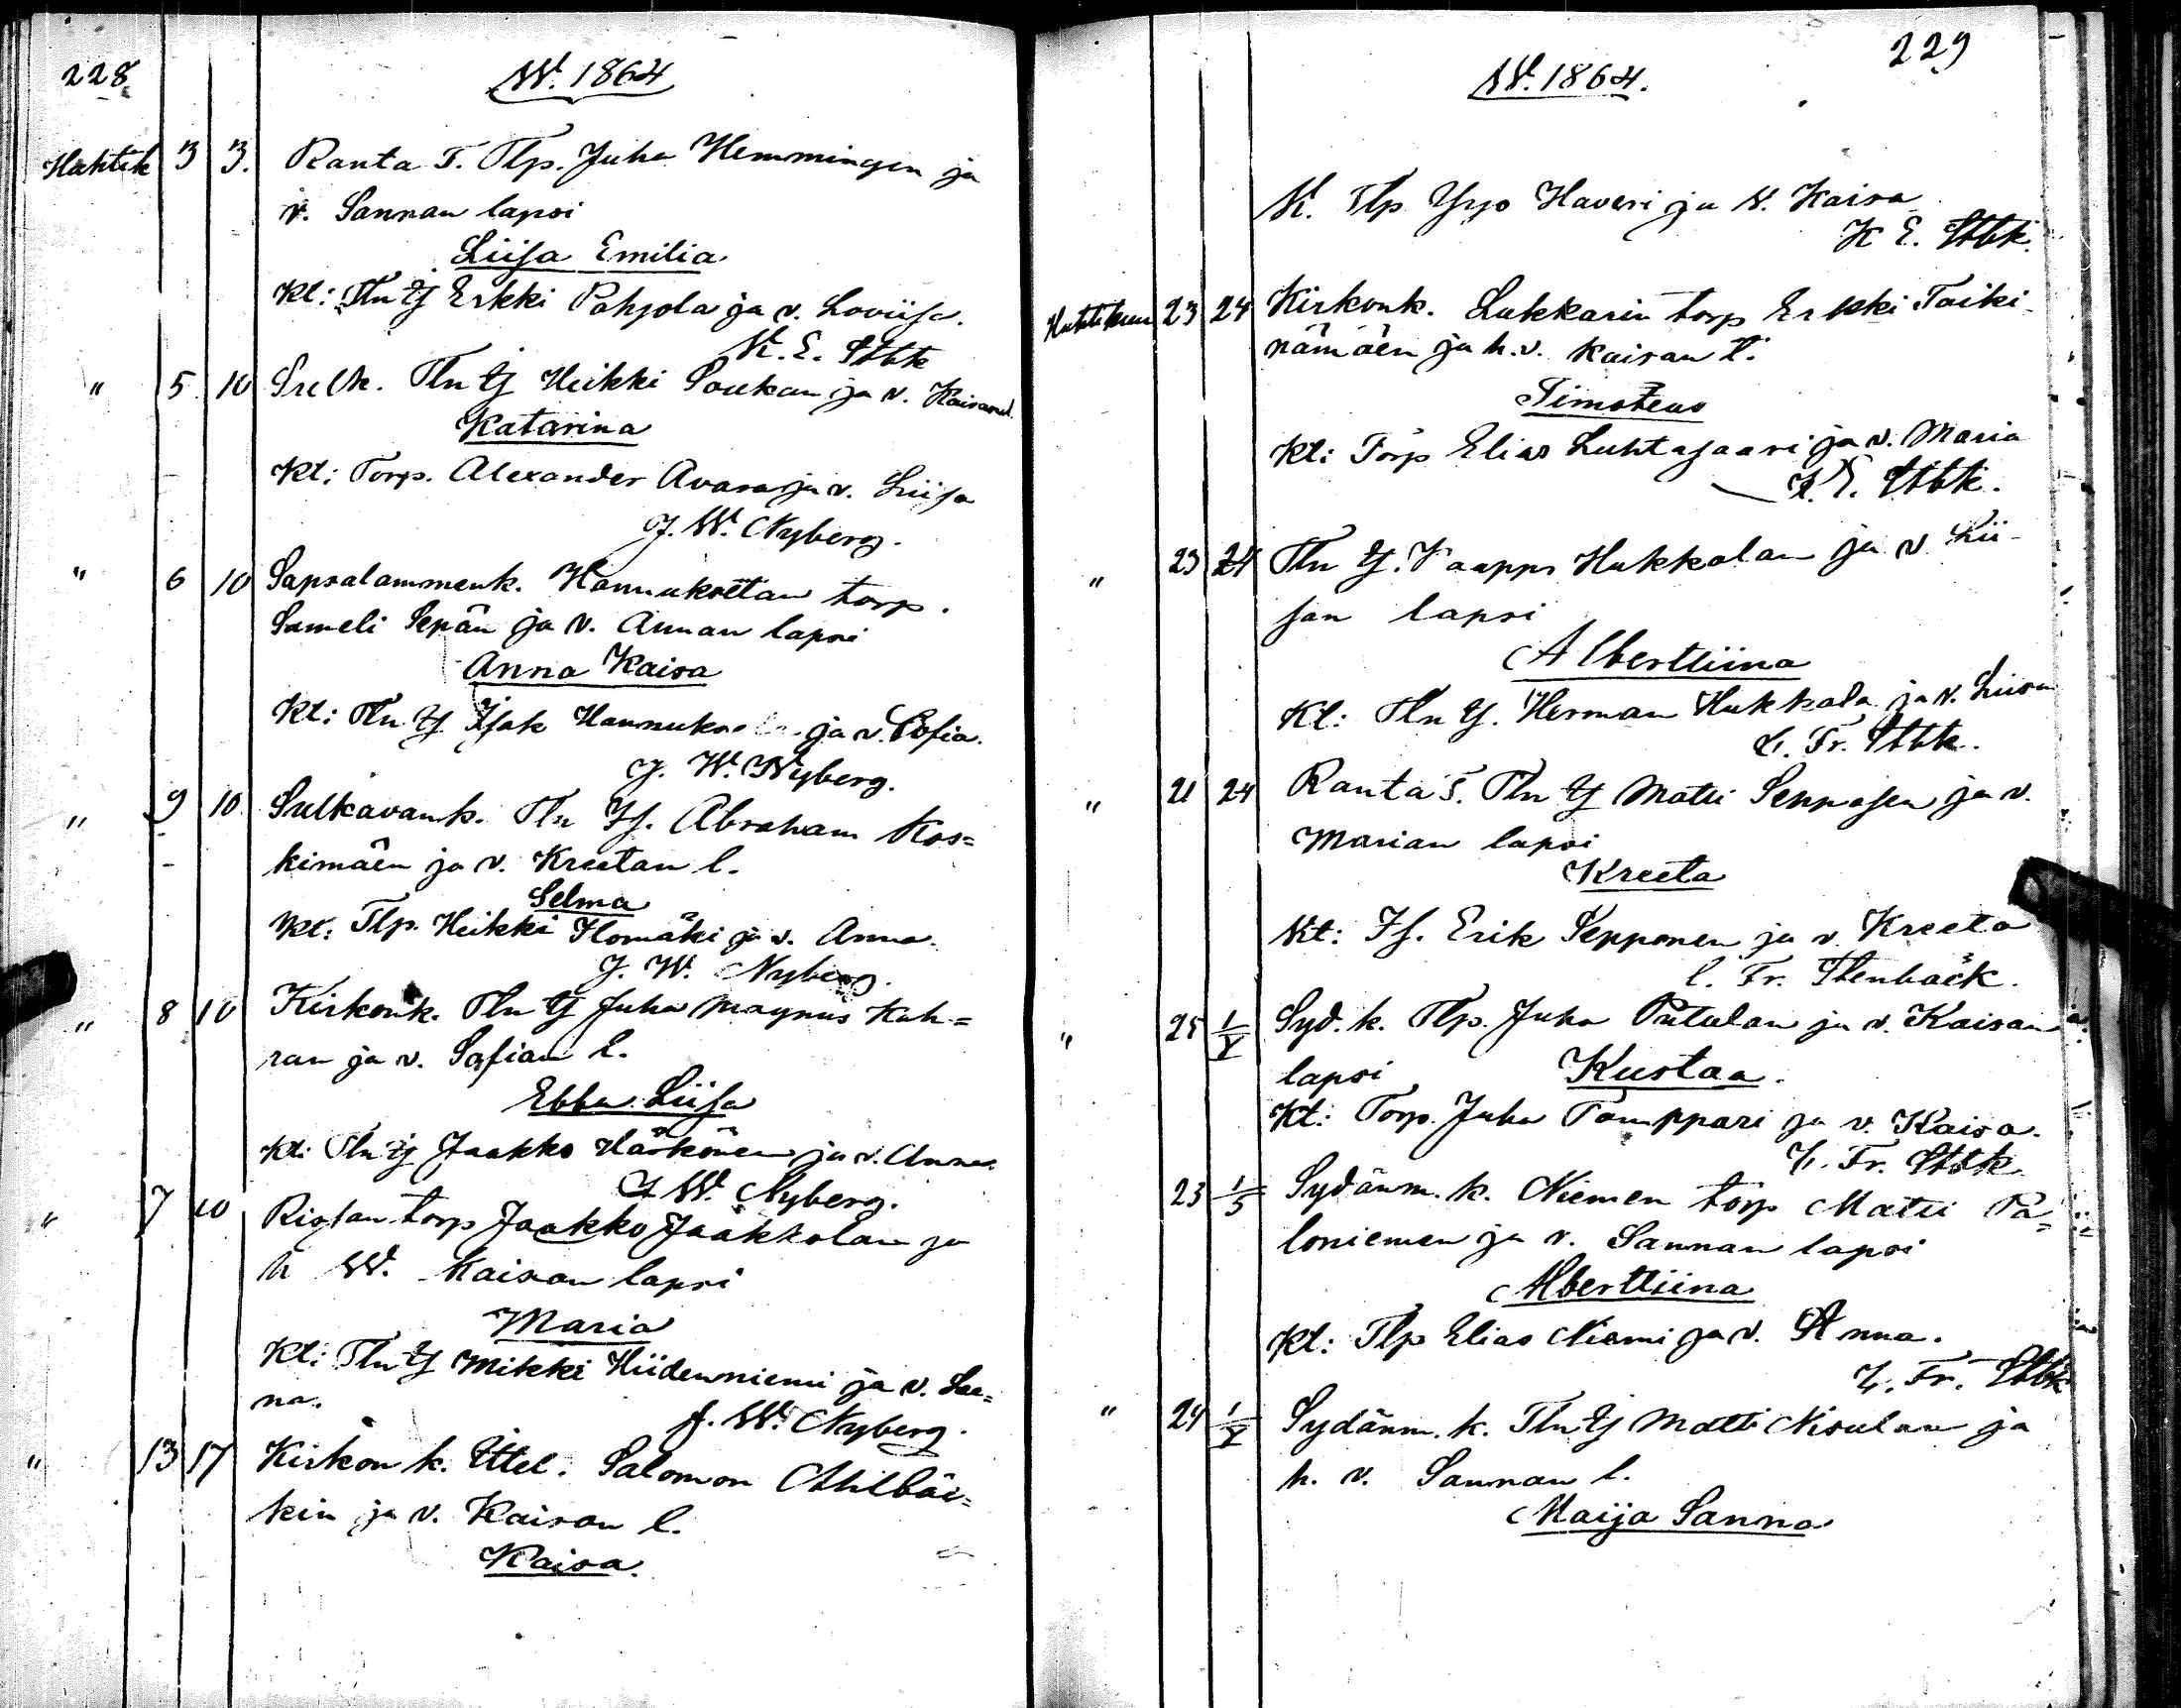 228
W. 1864
Huhtik 3 3. Ranta T. Tlp. Juha Hemmingen ja
v. Sannan lapsi
Liisa Emilia
Kt: Tln Ij Erkki Pohjola ja v. Loviisa.
K. E. Stbk
" 5 10 Sulk. Tln Ij Heikki Soukan ja v. Kaisan l.
Katarina
Kt: Torp. Alexander Avara ja v. Liisa
J. W. Nyberg.
" 6 10 Sapsalammenk. Hannukselan torp.
Sameli Sepän ja v. Annan lapsi
Anna Kaisa
Kt: Tln Ij Isak ja v. Sofia.
J. W. Nyberg.
" 9 10 Sulkavank. Tln Ij. Abraham Kos=
kimäen ja v. Kreetan l.
Selma
Kt: Tlp. Heikki Ilomäki ja v. Anna.
J. W. Nyberg.
" 8 10 Kirkonk. Tln Ij Juha Magnus Kah=
ran ja v. Sofian l.
Ebba Liisa
Kt: Tln Ij Jaakko Härkönen ja v. Anna
J W. Nyberg.
" 7 10 torp Jaakko Jaakkolan ja
h W. Kaisan lapsi
Maria
Kt: Tln Ij Mikki Hiidenniemi ja v. Lee=
na.
J. W. Nyberg.
" 13 17 Kirkon k. Ittel. Salomon Ahlbäc=
kin ja v. Kaisan l.
Kaisa.
229
W. 1864.
K. Tlp Yrjo Haveri ja v. Kaisa
K E. Stbk.
Huhtikuu 23 24 Kirkonk. Lukkarin torp Erkki Taiki-
nämäen ja h.v. Kaisan l.
Timoteus
Kt: Torp Elias Luhtasaari ja v. Maria
K. E. Stbk.
" 23 24 Tln Ij. Kaappo Hukkalan ja v Lii-
san lapsi
Albertiina
Kt: Tln Ij. Herman Hukkala ja v. Liisa
C. Fr. Stbk.
" 21 24 Ranta T. Tln Ij Matti Sepposen ja v.
Marian lapsi
Kreeta
Kt: Ij. Erik Sepponen ja v. Kreeta
C. Fr. Stenbäck.
" 25 1/V Syd. k. Tlp. Juha ja v. Kaisan
lapsi Kustaa.
Kt: Torp. Juha Tamppari ja v. Kaisa.
C. Fr. Stbk
23 1/5 Sydänm. k. Niemen torp Matti Pa=
loniemen ja v. Sannan lapsi
Alberttiina
Kt: Tlp Elias Niemi ja v. Anna.
C. Fr. Stbk
" 24 1/V Sydänm. k. Tln Ij Matti Nisulan ja
h. v. Sannan l.
Maija Sanna